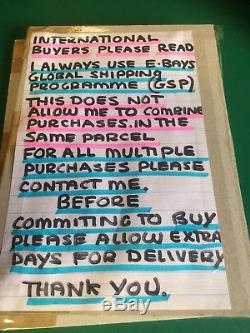 INTERNATIONAL
BUYERS PLEASE READ
I ALWAYS USE E-BAYS
GLOBAL SHIPPING
PROGRAMME (GSP)
THIS DOES NOT
ALLOW ME TO COMBINE
PURCHASES.IN THE
SAME PARCEL
FOR ALL MULTIPLE
PURCHASES PLEASE
CONTACT ME.
BEFORE
COMMITING TO BUY
PLEASE ALLOW EXTRA
DAYS FOR DELIVERY
THANK YOU.